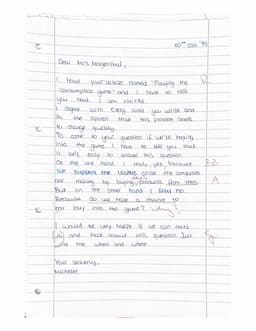 10th Oct. '93
Dear Mrs Morgenthal,
I read your article named 'Playing the
consumption game' and I have to tell
you that I am thrilled.
I agree with every word you wrote and
in the opinion that this problem needs
to change quickly.
To come to your question if we're buying
into the game I have to tell you that
it isn't easy to answer this question.
On the one hand I think yes because
we support the circle the companies
are making by buying products from them.
But on the other hand I say no.
Because do we have a chance to
not buy into the game? why?
I would be very happy if we can meet
(us) and talk about this question. Just
write me when and where.
Your sincerely,
Michelle